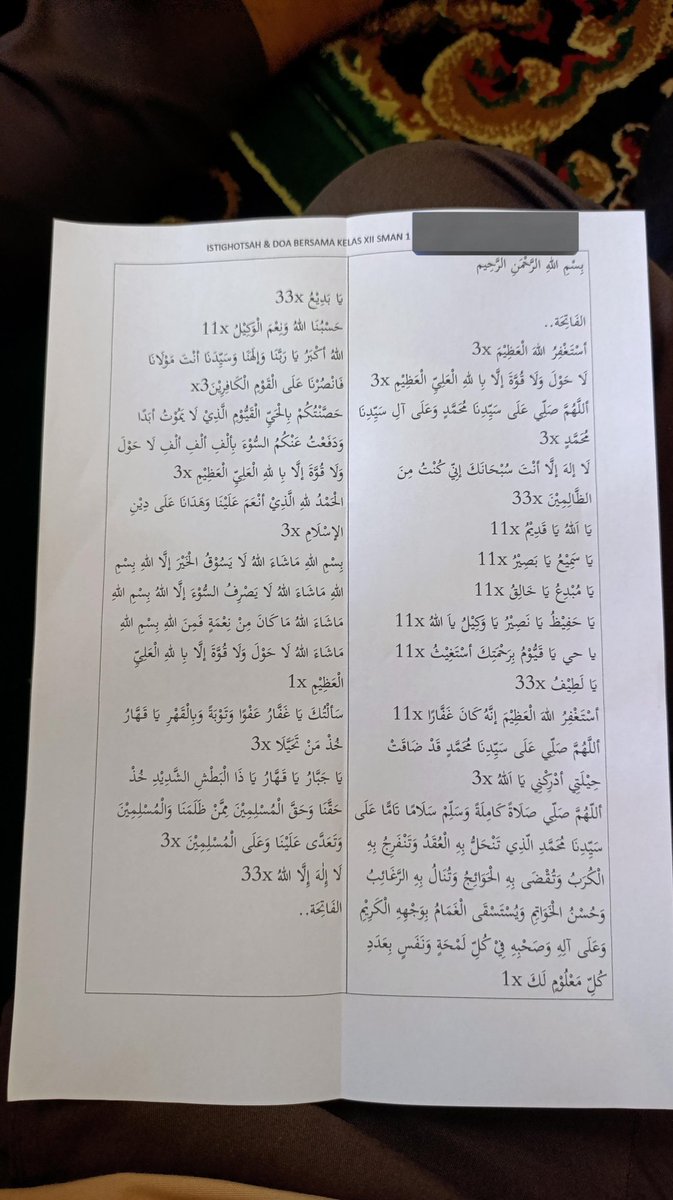 ISTIGHOTSAH & DOA BERSAMA KELAS XII SMAN 1
بِسْمِ اللهِ الرَّحْمَنِ الرَّحِيم
الفَاتِحَة..
أسْتَغْفِرُ اللهَ الْعَظِيْمَ 3x
لَا حَوْلَ وَلَا قُوَّةَ إلَّا بِا للهِ الْعَلِيِّ الْعَظِيْمِ 3x
أَللَّهُمَّ صَلِّي عَلَى سَيِّدِنَا مُحَمَّدٍ وَعَلَى آلِ سَيِّدِنَا
مُحَمَّدٍ 3x
لَا إلهَ إلَّا أنْتَ سُبْحَانَكَ إنِّي كُنْتُ مِنَ
الظَّالِمِيْنَ 33x
يَا اَللهُ يَا قَدِيْمُ 11x
يَا سَمِيْعُ يَا بَصِيْرُ 11x
يَا مُبْدِعُ يَا خَالِقُ 11x
يَا حَفِيْظُ يَا نَصِيْرُ يَا وَكِيْلُ ياَ اللهُ 11x
يا حي يَا قَيُّوْمُ بِرَحْمَتِكَ أسْتَغِيْثُ 11x
يَا لَطِيْفُ 33x
أسْتَغْفِرُ اللهَ الْعَظِيْمَ إنَّهُ كَانَ غَفَّارًا 11x
أَللَّهُمَّ صَلِّي عَلَى سَيِّدِنَا مُحَمَّدٍ قَدْ ضَاقَتْ
حِيْلَتِي أدْرِكْنِي يَا اَللهُ 3x
أللّهُمَّ صَلِّي صَلَاةً كَامِلَةً وَسَلِّمْ سَلَامًا تَامًّا عَلَى
سَيِّدِنَا مُحَمَّدِ الَّذِي تَنْحَلُّ بِهِ الْعُقَدُ وَتَنْفَرِجُ بِهِ
الْكُرَبُ وَتُقْضَى بِهِ الْحَوَائِجُ وَتُنَالُ بِهِ الرَّغَائِبُ
وَحُسْنُ الْخَوَاتِمِ وَيُسْتَسْقَى الْغَمَامُ بِوَجْهِهِ الْكَرِيْمِ
وَعَلَى آلِهِ وَصَحْبِهِ فِيْ كُلِّ لَمْحَةٍ وَنَفَسٍ بِعَدَدِ
كُلِّ مَعْلُوْمٍ لَكَ 1x
يَا بَدِيْعُ 33x
حَسْبُنَا اللهُ وَنِعْمَ الْوَكِيْلُ 11x
اللهُ أكْبَرُ يَا رَبَّنَا وَإلهَنَا وَسَيِّدَنَا أنْتَ مَوْلَانَا
فَانْصُرْنَا عَلَى الْقَوْمِ الْكَافِرِيْنَ3x
حَصَّنْتُكُمْ بِالْحَيِّ الْقَيُّوْمِ الَّذِيْ لَا يَمُوْتُ أبَدًا
وَدَفَعْتُ عَنْكُمُ السُّوْءَ بِألْفِ ألْفِ ألْفِ لَا حَوْلَ
وَلَا قُوَّةَ إلَّا بِا للهِ الْعَلِيِّ الْعَظِيْمِ 3x
الْحَمْدُ للهِ الَّذِيْ أنْعَمَ عَلَيْنَا وَهَدَانَا عَلَى دِيْنِ
الإسْلَامِ 3x
بِسْمِ اللهِ مَاشَاءَ اللهُ لَا يَسُوْقُ الْخَيْرَ إلَّا اللهُ بِسْمِ
اللهِ مَاشَاءَ اللهُ لَا يَصْرِفُ السُّوْءَ إلَّا اللهُ بِسْمِ اللهِ
مَاشَاءَ اللهُ مَا كَانَ مِنْ نِعْمَةٍ فَمِنَ اللهِ بِسْمِ اللهِ
مَاشَاءَ اللهُ لَا حَوْلَ وَلَا قُوَّةَ إلَّا بِا للهِ الْعَلِيِّ
الْعَظِيْمِ 1x
سَألْتُكَ يَا غَفَّارُ عَفْوًا وَتَوْبَةً وَبِالْقَهْرِ يَا قَهَّارُ
خُذْ مَنْ تَحَيَّلَا 3x
يَا جَبَّارُ يَا قَهَّارُ يَا ذَا الْبَطْشِ الشَّدِيْدِ خُذْ
حَقَّنَا وَحَقَّ الْمُسْلِمِيْنَ مِمَّنْ ظَلَمَنَا وَالْمُسْلِمِيْنَ
وَتَعَدَّى عَلَيْنَا وَعَلَى الْمُسْلِمِيْنَ 3x
لَا إِلٰهَ إِلَّا اللهُ 33x
الفَاتِحَة..